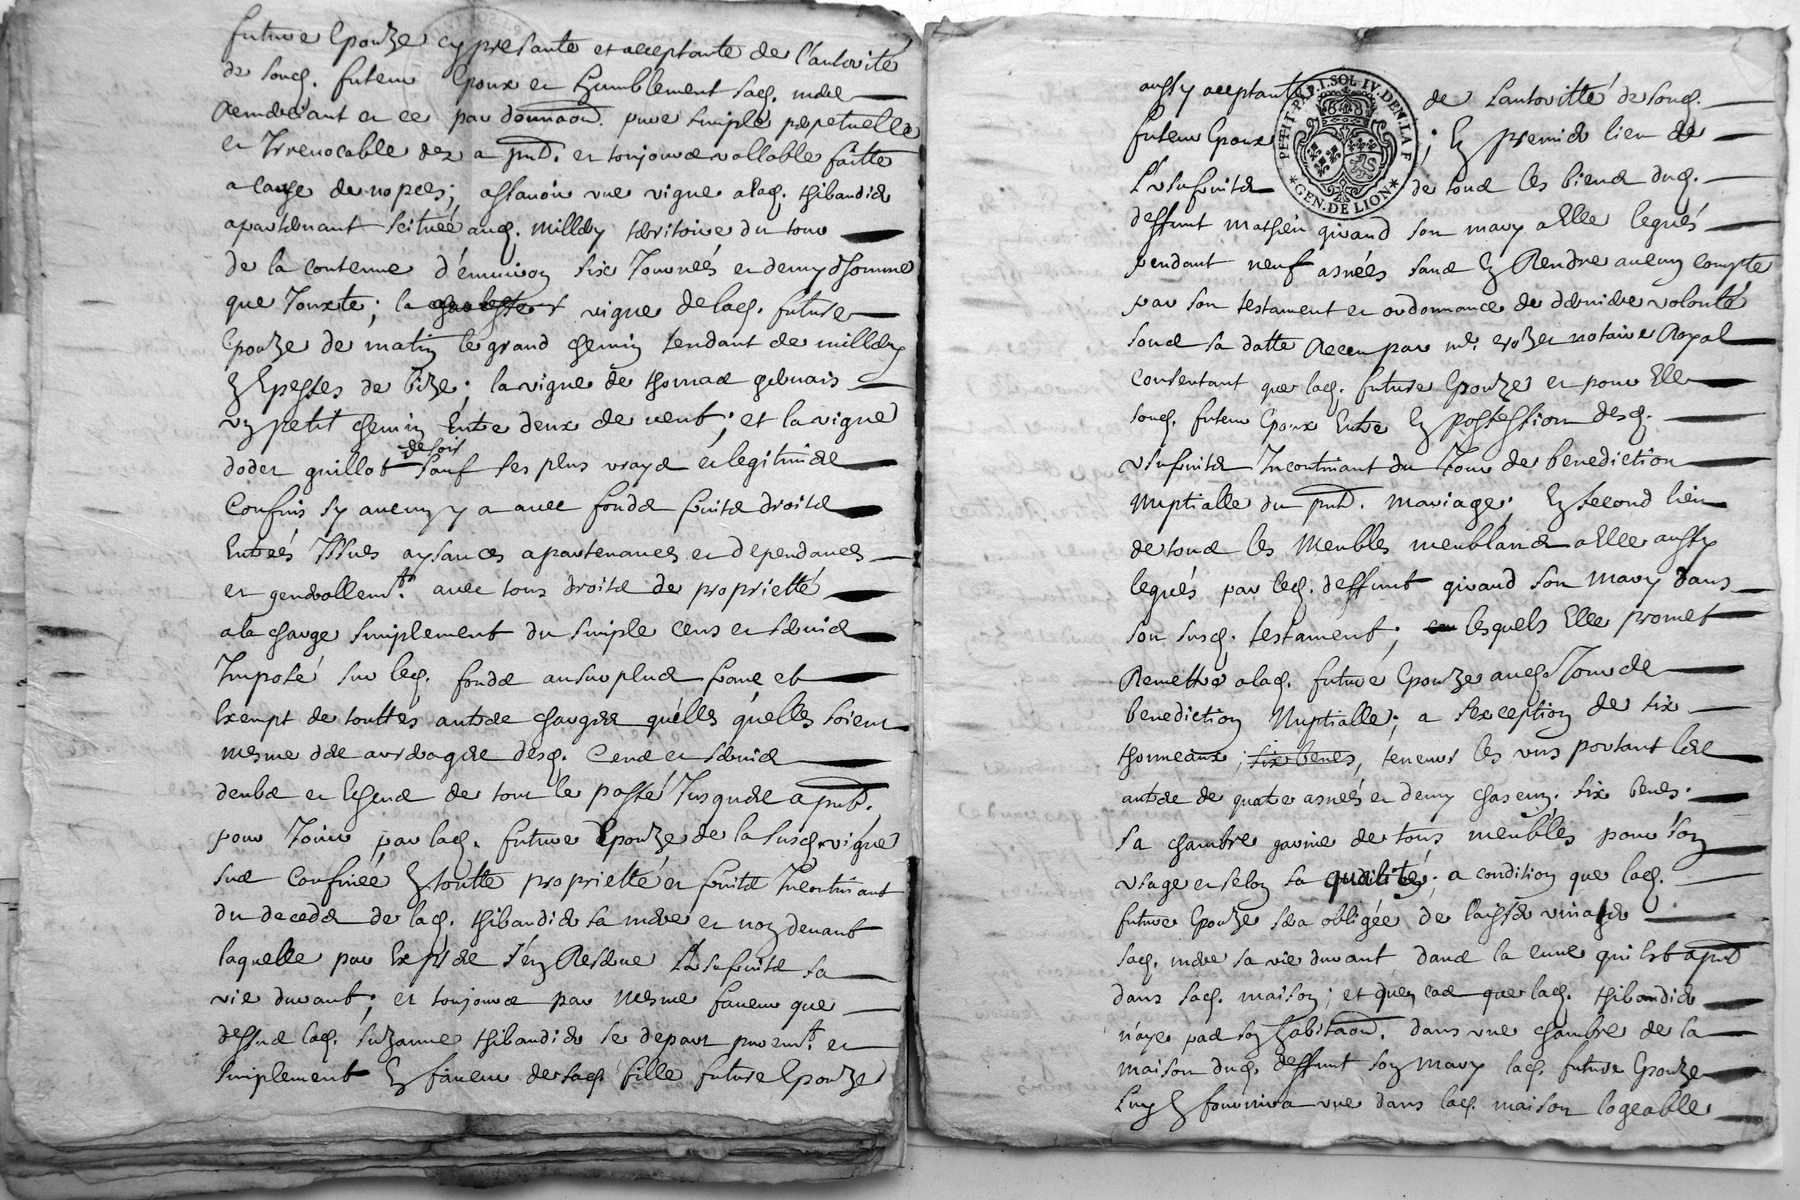 future Epouze cy presante et acceptante de l'autorité
de soud. futeur Epoux et humblement sad. mere
Remerciant et ce par donnaon. pure simple perpetuelle
et Irrevocable dez a pnt. et toujours vallable faitte
a cause de nopces; assavoir une vigne a lad. thibaudier
apartenant scituée aud. Millery téritoire du tour
de la contenue d'environ six Journeés et demy d'homme
que Jouxte; la vigne de lad. future
Epouze de matin le grand chemin tendant de millery
Es Epesses de bize; la vigne de thomas gervais
un petit chemin Entre deux de vent; et la vigne
doder guillot de soir sauf ses plus vrays et legitimes
Confins sy aucuns y a avec fonds fruits droits
Entreés Issues aysances apartenances et dependances
et generallemt. avec tous droits de proprietté
a la charge simplement du simple cens et servis
Imposé sur led. fonds au surplus franc et
Exempt de touttes autres charges quelles quelles soient
mesme des arrerages desd. Cens et servis
deubs et Echeus de tout le passé Jusques a pnt.
pour Jouir par lad. future Epouze de la susd. vigne
sus Confinée En toutte proprietté et fruits Incontinant
du deceds de lad. thibaudier sa mere et non devant
laquelle par Exprès s'en Reserve L'usufruits sa
vie durant; et toujours par mesme faveur que
dessus lad. suzanne thibaudier se depart puremt. et
simplement En faveur de sad. fille future Epouze
aussy acceptante de Lautoritté de soud.
futeur Epoux; En premier lieu de
L'usufruits de tous les biens dud.
deffunt mathieu giraud son mary a Elle legués
pendant neuf asneés sans En Rendre aucun compte
par son testament et ordonnance de derniere volonté
sous sa datte Receu par me. notaire Royal
Consentant que lad. future Epouze et pour Elle
soud. futeur Epoux Entre En possession desd.
usufruits Incontinant du Jour de benediction
Nuptialle du pnt. mariage; En second lieu
de tous les Meubles meublans a Elle aussy
legués par led. deffunt giraud son mary dans
son susd. testament; lesquels Elle promet
Remettre a lad. future Epouze aud. Jour de
benediction Nuptialle; a l'exception de six
thonneaux; six benes, teneur les uns portant les
autres de quatre asneés et demy chascun. six benes.
sa chambre garnie de tous meubles pour son
usage et selon sa qualité; a condition que lad.
future Epouze sera obligée de laisser
sad. mere sa vie durant dans la cuve qui est a pnt
dans sad. maison; et quen cas que lad. thibaudier
n'aye pas son habitaon. dans une chambre de la
maison dud. deffunt son mary lad. future Epouze
Luy En fournira une dans lad. maison logeable
PETIT PAP. 1. SOL IV. DEN. LA F
GEN. DE LION